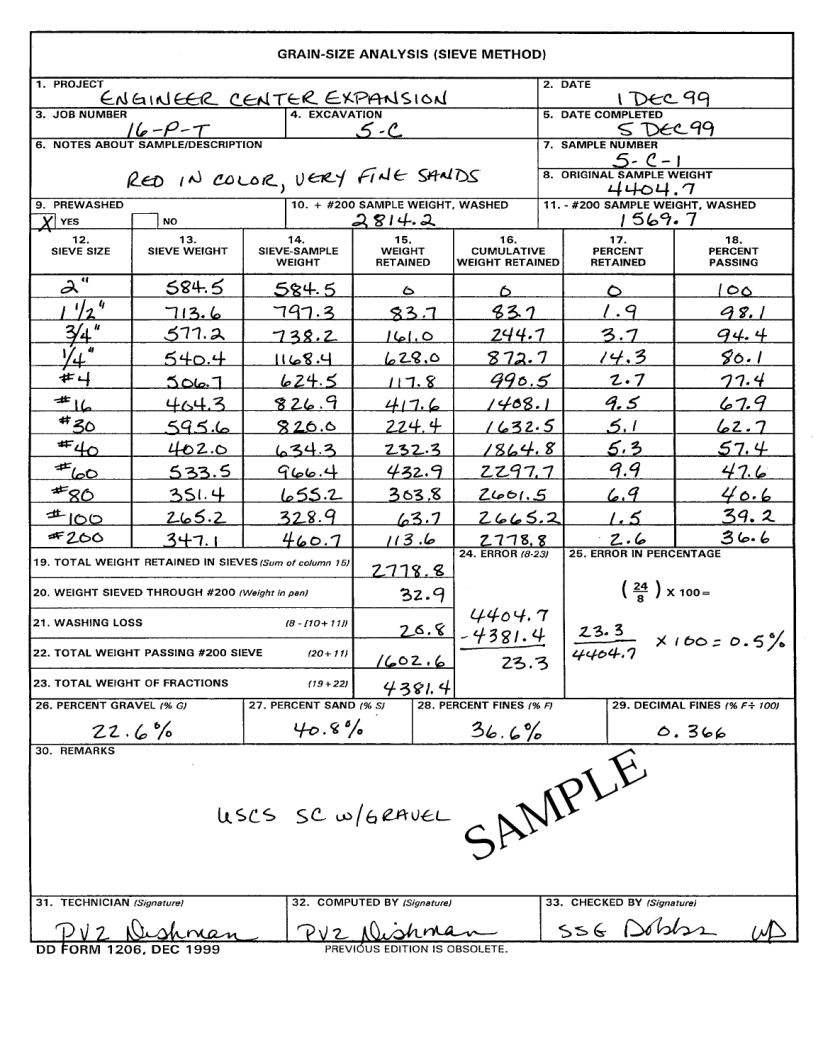 GRAIN-SIZE ANALYSIS (SIEVE METHOD)
1. PROJECT
ENGINEER CENTER EXPANSION
2. DATE
1 DEC 99
3. JOB NUMBER
16-P-T
4. EXCAVATION
5-C
5. DATE COMPLETED
5 DEC 99
6. NOTES ABOUT SAMPLE/DESCRIPTION
RED IN COLOR, VERY FINE SANDS
7. SAMPLE NUMBER
5-C-1
8. ORIGINAL SAMPLE WEIGHT
4404.7
9. PREWASHED
X YES NO
10. + #200 SAMPLE WEIGHT, WASHED
2814.2
11. - #200 SAMPLE WEIGHT, WASHED
1569.7
12. SIEVE SIZE 13. SIEVE WEIGHT 14. SIEVE-SAMPLE WEIGHT 15. WEIGHT RETAINED 16. CUMULATIVE WEIGHT RETAINED 17. PERCENT RETAINED 18. PERCENT PASSING
2" 584.5 584.5 0 0 0 100
1 1/2" 713.6 797.3 83.7 83.7 1.9 98.1
3/4" 577.2 738.2 161.0 244.7 3.7 94.4
1/4" 540.4 1168.4 628.0 872.7 14.3 80.1
#4 506.7 624.5 117.8 990.5 2.7 77.4
#16 464.3 826.9 417.6 1408.1 9.5 67.9
#30 595.6 820.0 224.4 1632.5 5.1 62.7
#40 402.0 634.3 232.3 1864.8 5.3 57.4
#60 533.5 966.4 432.9 2297.7 9.9 47.6
#80 351.4 655.2 303.8 2601.5 6.9 40.6
#100 265.2 328.9 63.7 2665.2 1.5 39.2
#200 347.1 460.7 113.6 2778.8 2.6 36.6
19. TOTAL WEIGHT RETAINED IN SIEVES (Sum of column 15) 2778.8
20. WEIGHT SIEVED THROUGH #200 (Weight in pan) 32.9
21. WASHING LOSS (8 - [10 + 11]) 20.8
22. TOTAL WEIGHT PASSING #200 SIEVE (20 + 11) 1602.6
23. TOTAL WEIGHT OF FRACTIONS (19 + 22) 4381.4
24. ERROR (8-23)
4404.7
-4381.4
23.3
25. ERROR IN PERCENTAGE
(24/8) x 100 =
23.3/4404.7 X 100 = 0.5%
26. PERCENT GRAVEL (% G)
22.6%
27. PERCENT SAND (% S)
40.8%
28. PERCENT FINES (% F)
36.6%
29. DECIMAL FINES (% F ÷ 100)
0.366
30. REMARKS
USCS SC W/GRAVEL
SAMPLE
31. TECHNICIAN (Signature)
PV2 Dishman
32. COMPUTED BY (Signature)
PV2 Dishman
33. CHECKED BY (Signature)
SSG Dobbs
DD FORM 1206, DEC 1999
PREVIOUS EDITION IS OBSOLETE.